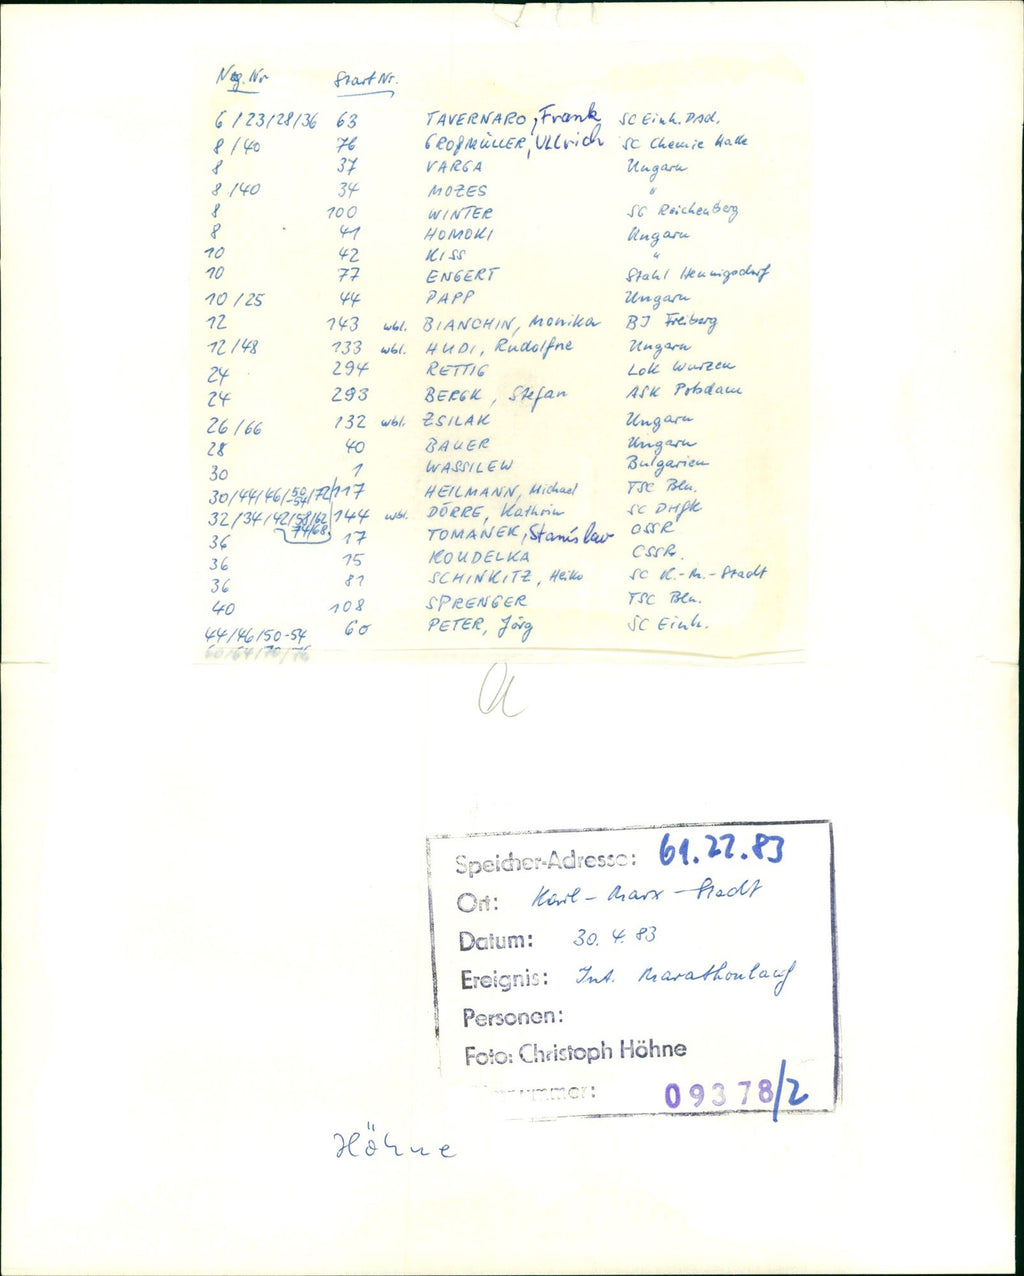 Neg. Nr Start Nr.
6/23/28/36 63 TAVERNARO, Frank SC Einh. Dsd.
8/40 76 GROßMÜLLER, Ullrich SC Chemie Halle
8 37 VARGA Ungarn
8/40 34 MOZES "
8 100 WINTER SG Reichenberg
8 41 HOMOKI Ungarn
10 42 KISS "
10 77 ENGERT Stahl Hennigsdorf
10/25 44 PAPP Ungarn
12 143 wbl. BIANCHIN, Monika BJ Freiberg
12/48 133 wbl. HUDI, Rudolfne Ungarn
24 294 RETTIG Lok Wurzen
24 293 BERGK, Stefan ASK Potsdam
26/66 132 wbl. ZSILAK Ungarn
28 40 BAUER Ungarn
30 1 WASSILEW Bulgarien
30/44/46/50-54/72/117 HEILMANN, Michael TSC Bln.
32/34/42/58/62 74/68 144 wbl. DÖRRE, Kathrin SC DHfK
36 17 TOMANEK, Stanislav CSSR
36 15 KOUDELKA CSSR.
36 81 SCHINKITZ, Heiko SC K.-M.-Stadt
40 108 SPRENGER TSC Bln.
44/46/50-54 60 PETER, Jörg SC Einh.
60/64/70/76
a
Speicher-Adresse: 61.22.83
Ort: Karl-Marx-Stadt
Datum: 30.4.83
Ereignis: Int. Marathonlauf
Personen:
Foto: Christoph Höhne
09378/2
Höhne